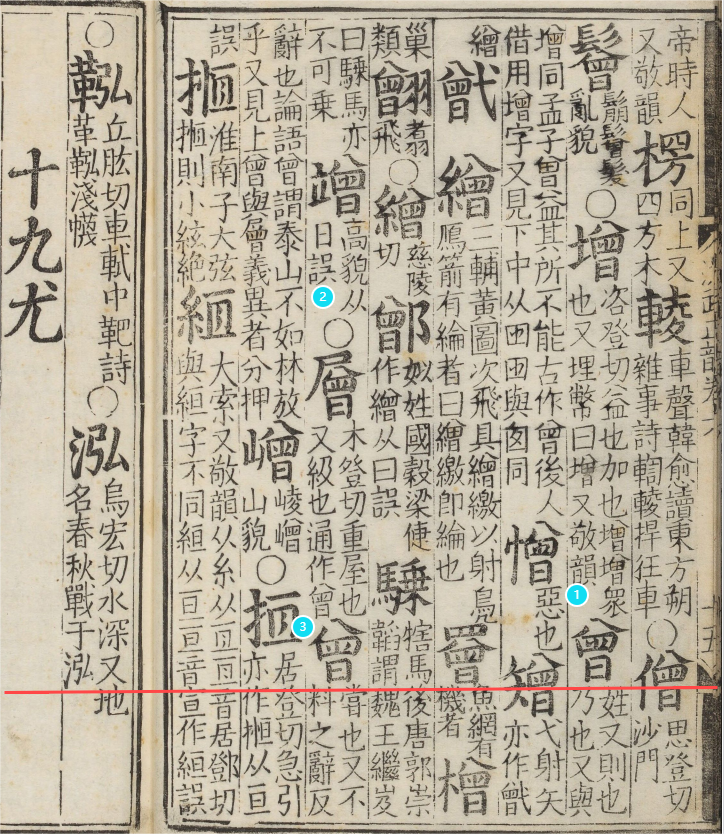 帝時人又敬韻楞同上又四方木輘車聲韓愈讀東方朔雜事詩輷輘掉狂車○僧思登切沙門
鬙鬅鬙髮亂貌○增咨登切益也加也增增眾也又埋幣曰增又敬韻曾姓又則也乃也又與
增同孟子曾益其所不能古作曾後人借用增字又見下中从囪囪與囱同憎惡也矰弋射矢亦作
繒繒三輔黃圖次飛具繒繳以射鳥鴈箭有綸者曰繒繳即綸也罾魚網有機者橧
巢類䎖翥飛○繒慈陵切鄫姒姓國穀梁傳作繒从曰誤騬犗馬後唐郭崇韜謂魏王繼岌
曰騬馬亦不可乗竲高貌从日誤○層木登切重屋也又級也通作曾曾嘗也又不料之辭反
辭也論語曾謂泰山不如林放乎又見上曾與層義異者分押嶒崚嶒山貌○搄居登切急引亦作搄从亘
誤搄淮南子大弦搄則小絃絶縆大索又敬韻从糸从亙亙音居鄧切與絙字不同絙从亘亘音宣作絙誤
○鞃丘肱切車軾中靶詩革鞃淺幭○泓烏宏切水深又地名春秋戰于泓
十九尤
1
2
3